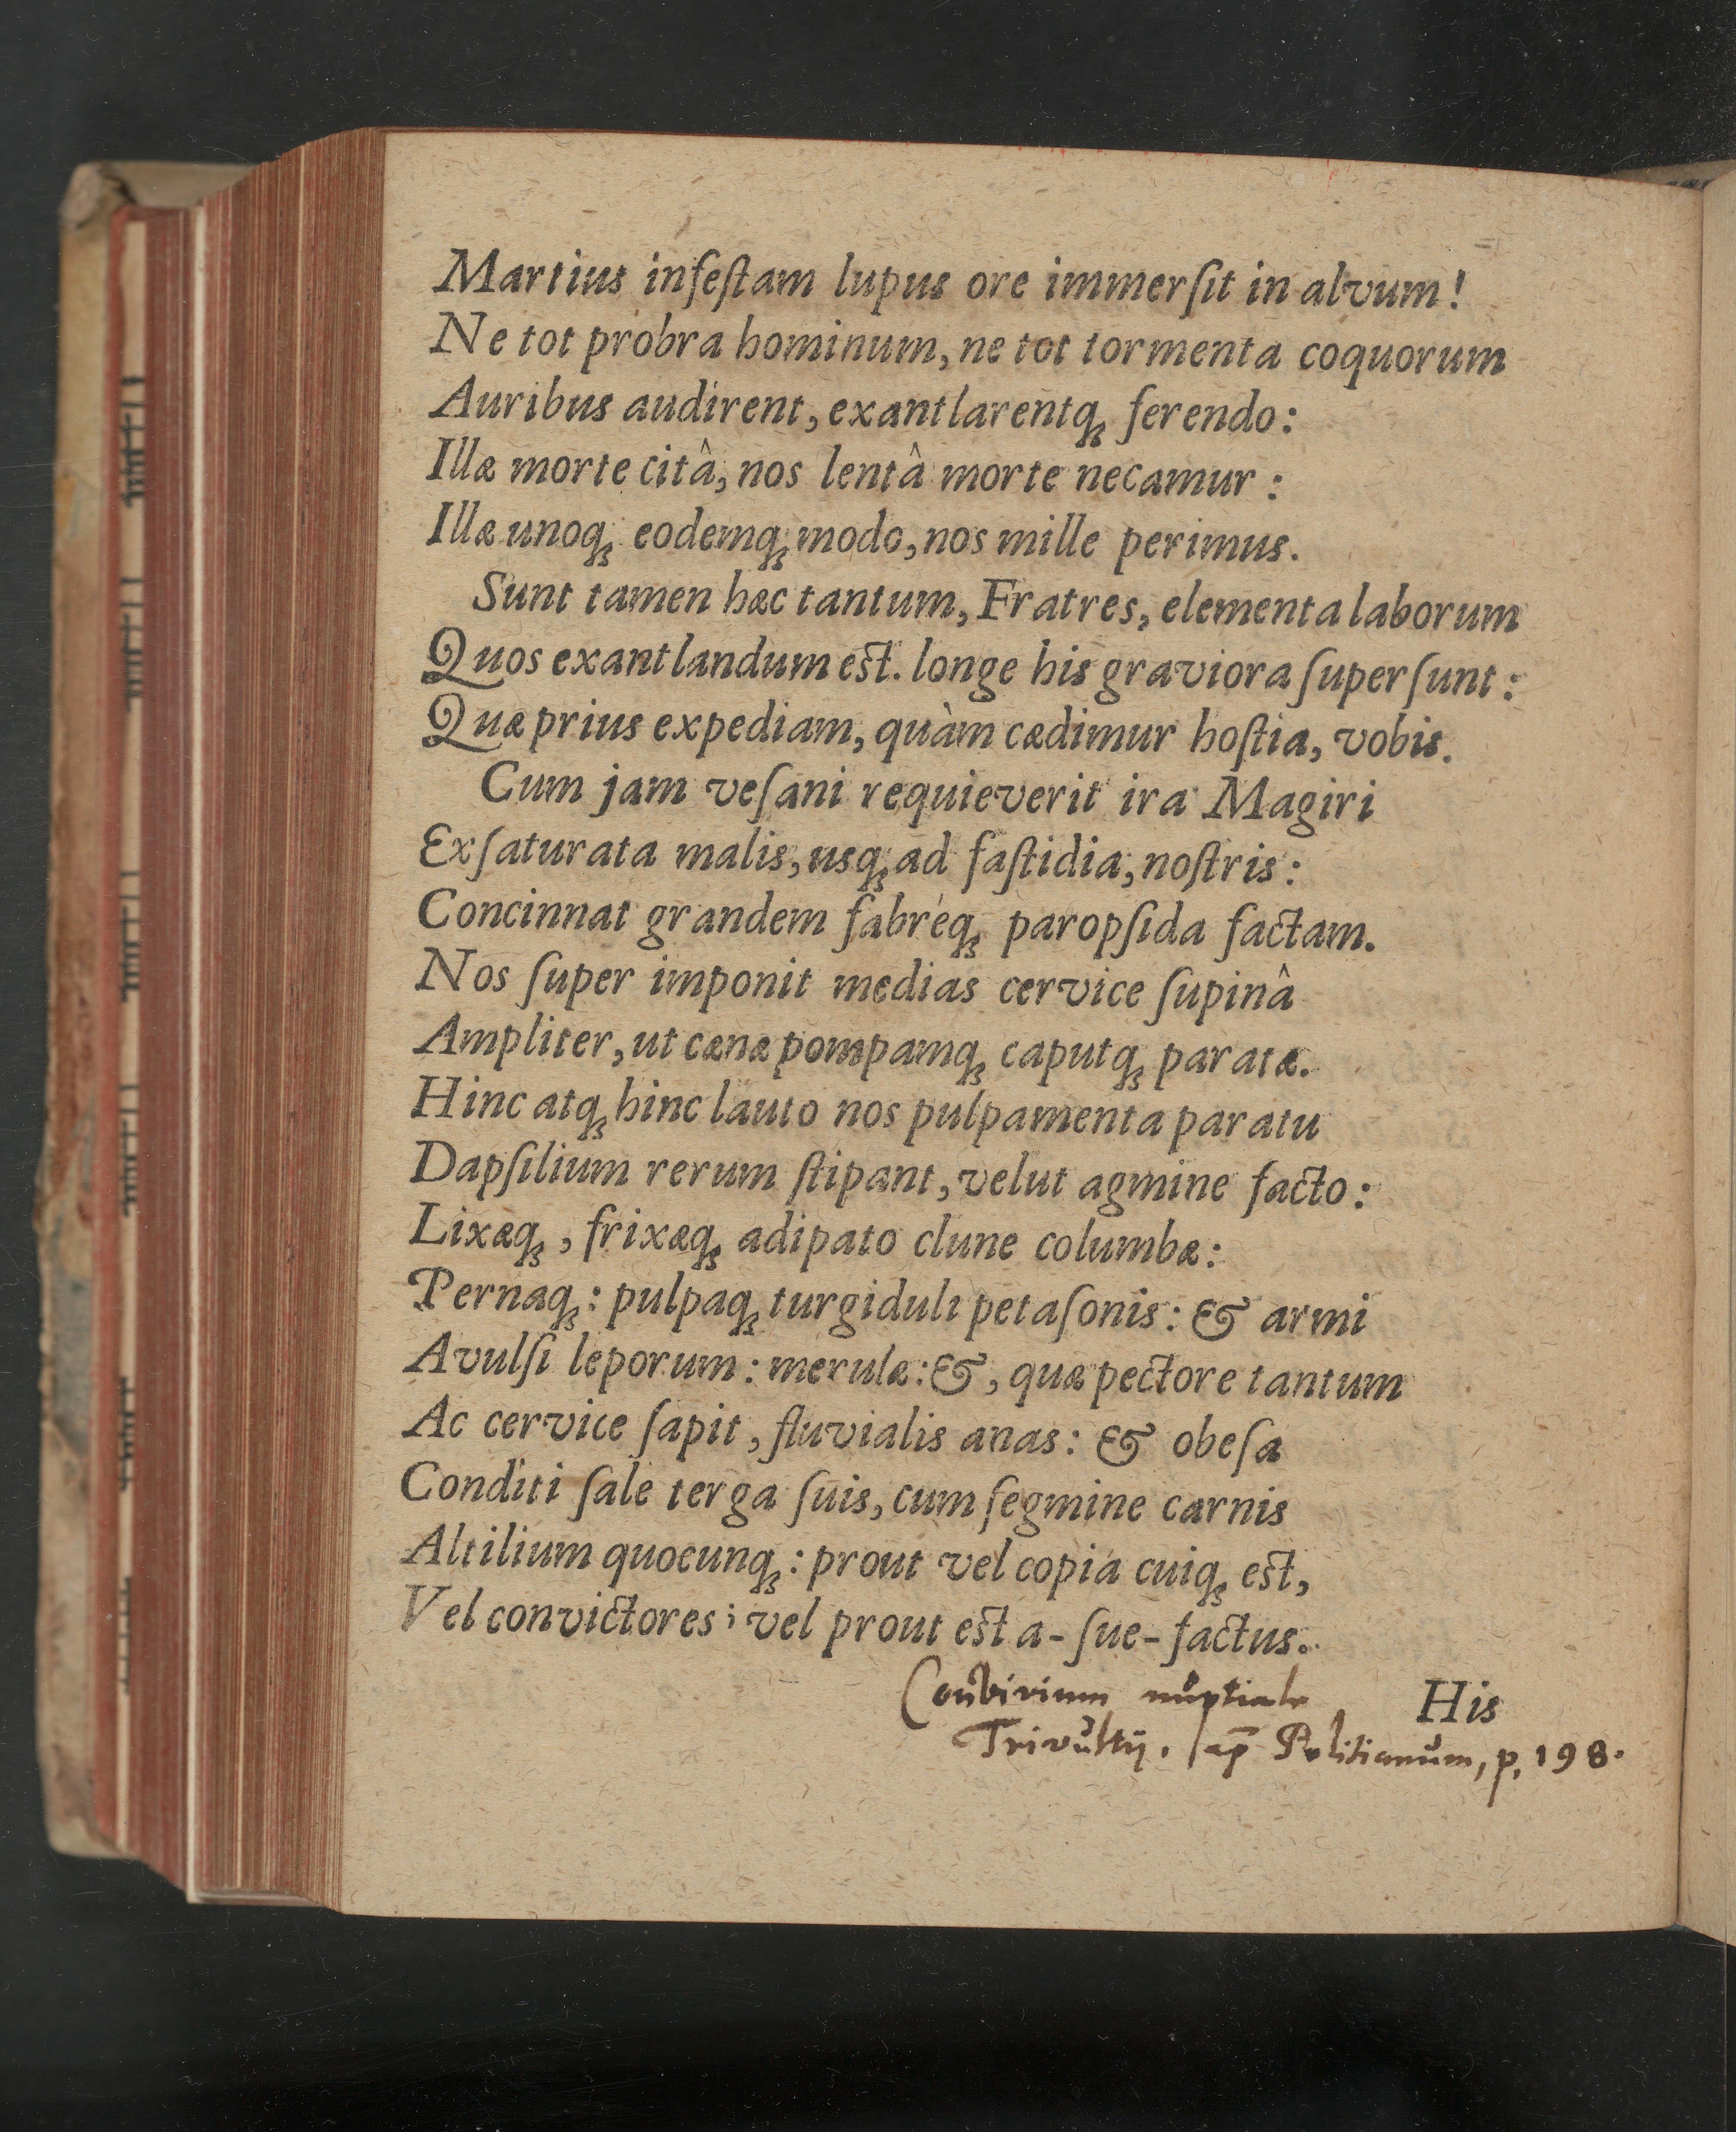 Martius infeſtam lupus ore immerſit in alvum!
Ne tot probra hominum, ne tot tormenta coquorum
Auribus audirent, exantlarentq́ꝫ ferendo:
Illæ morte citâ, nos lentâ morte necamur:
Illæ unoqꝫ eodemqꝫ modo, nos mille perimus.
Sunt tamen hæc tantum, Fratres, elementa laborum
Quos exantlandum eſt. longe his graviora ſuperſunt:
Quæ prius expediam, quàm cædimur hoſtia, vobis.
Cum jam veſani requieverit ira Magiri
Exſaturata malis, usqꝫ ad faſtidia, noſtris:
Concinnat grandem fabréqꝫ paropſida factam.
Nos ſuper imponit medias cervice ſupinâ
Ampliter, ut cænæ pompamqꝫ caputqꝫ paratæ.
Hinc atqꝫ hinc lauto nos pulpamenta paratu
Dapſilium rerum ſtipant, velut agmine facto:
Lixæqꝫ, frixæqꝫ adipato clune columbæ:
Pernaqꝫ: pulpaqꝫ turgiduli petaſonis: & armi
Avulſi leporum: merulæ: &, quæ pectore tantum
Ac cervice ſapit, fluvialis anas: & obeſa
Conditi ſale terga ſuis, cum ſegmine carnis
Altilium quocunqꝫ: prout vel copia cuiqꝫ eſt,
Vel convictores; vel prout eſt a-ſue-factus.
Convivium nuptiale
His
Trivultij. ap̄ Politianum, p. 198.